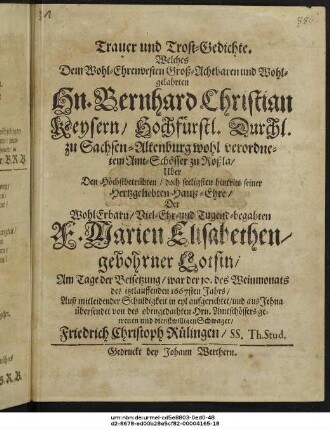 Trauer und Trost-Gedichte.
Welches
Dem Wohl-Ehrenvesten Groß-Achtbaren und Wohl-
gelahrten
Hn. Bernhard Christian
Keysern/ Hochfürstl. Durchl.
zu Sachsen-Altenburg wohl verordne-
tem Amt-Schösser zu Roßla/
Uber
Den Höchstbetrübten / doch seeligsten hintritt seiner
Hertzgeliebten Hauß-Ehre/
Der
Wohl Erbarn/ Viel-Ehr- und Tugend-begabten
F. Marien Elisabethen/
gebohrner Lotsin/
Am Tage der Beisetzung/ war der 10. des Weinmonats
des itztlauffenden 1667sten Jahrs/
Auß mitleidender Schuldigkeit in eyl aufgerichtet/ und aus Jehna
übersendet von des obengedachten Hrn. Amtschössers ge-
treuen und dienstwilligen Schwager/
Friedrich Christoph Rülingen/ SS. Th. Stud.
Gedruckt bey Johann Werthern.
urn:nbn:de:urmel-cd5e8803-0ed0-48
d2-8678-ed00b28e5cf82-00004165-18